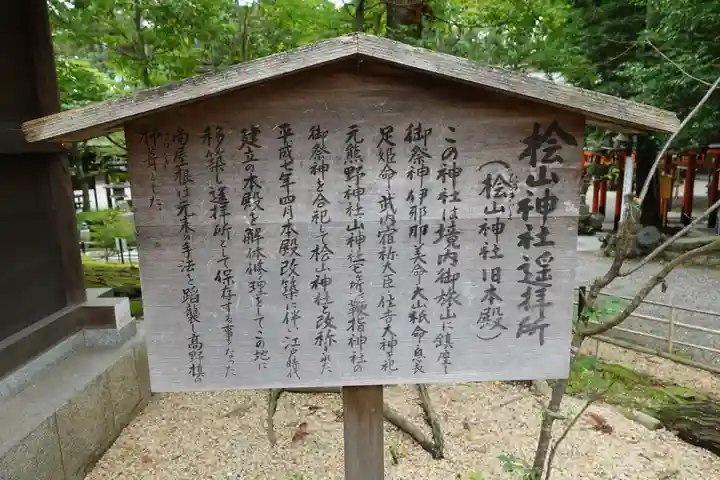 桧山神社遥拝所
(桧山神社旧本殿)
ひのきやま
この神社は境内御旅山に鎮座し
御祭神 伊邪那美命・大山祇命・息長
足姫命・武内宿祢大臣・住吉大神を祀
元熊野神社山神社 鞭指神社の
御祭神を合祀して桧山神社と改称された
平成七年四月本殿改築に伴い江戸時代
建立の本殿を解体修理をしてこの地に
移築し遥拝所として保存する事となった
尚屋根は元来の手法を踏襲し高野槙の